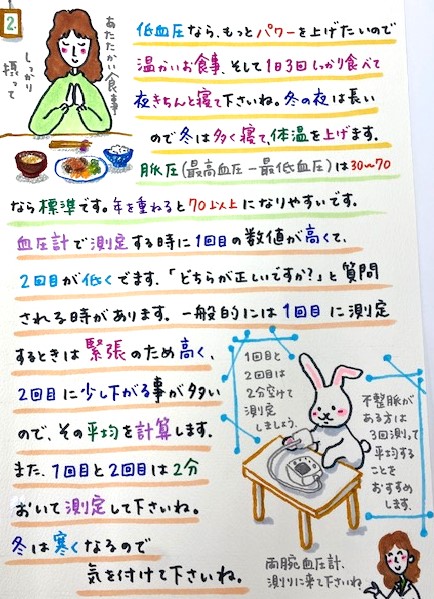 2.
あたたかい食事
しっかり
摂って
低血圧なら、もっとパワーを上げたいので
温かいお食事、そして1日3回しっかり食べて
夜きちんと寝て下さいね。冬の夜は長い
ので冬は多く寝て、体温を上げます。
脈圧(最高血圧-最低血圧)は30~70
なら標準です。年を重ねると70以上になりやすいです。
血圧計で測定する時に1回目の数値が高くて、
2回目が低くでます。「どちらが正しいですか?」と質問
される時があります。一般的には1回目に測定
するときは緊張のため高く、
2回目に少し下がる事が多い
ので、その平均を計算します。
また、1回目と2回目は2分
おいて測定して下さいね。
冬は寒くなるので
気を付けて下さいね。
1回目と
2回目は
2分空けて
測定
しましょう。
不整脈が
ある方は
3回測って
平均する
ことを
おすすめ
します。
両腕血圧計、
測りに来て下さいね